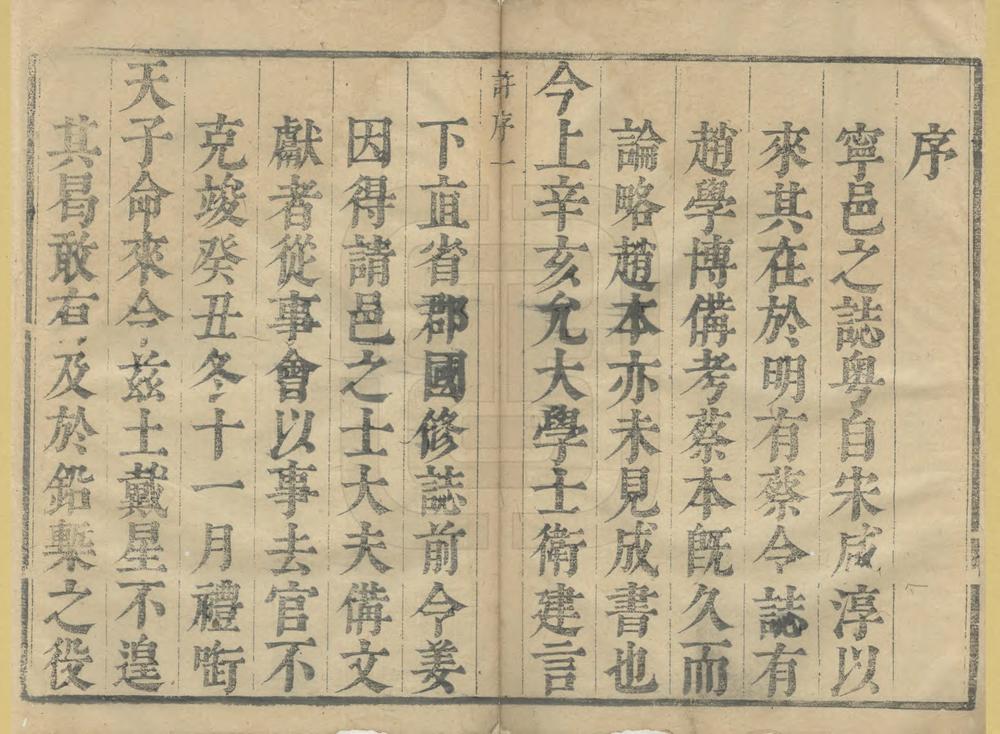 序
寧邑之誌粤自朱咸淳以
來其在於明有蔡令誌有
趙學博備考蔡本旣久而
論略趙本亦未見成書也
今上辛亥允大學士衛建言
許序一
下直省郡國修誌前令姜
因得請邑之士大夫備文
獻者從事會以事去官不
克竣癸丑冬十一月禮
天子命來令兹土戴星不遑
其曷敢右及於鉛槧之役